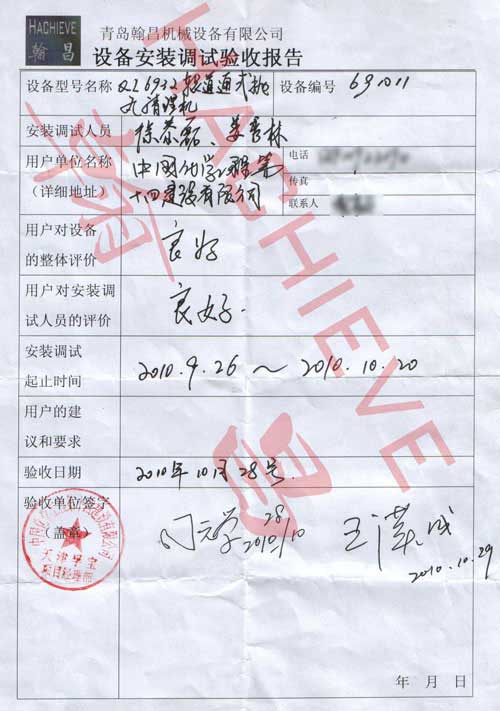 HACHIEVE
翰昌
青岛翰昌机械设备有限公司
设备安装调试验收报告
设备型号名称 Q6932辊道通式抛
丸清理机
设备编号 691011
安装调试人员
用户单位名称
(详细地址)
中国化学工程第
十四建设有限公司
电话
传真
联系人
用户对设备
的整体评价
良好
用户对安装调
试人员的评价
良好.
安装调试
起止时间
2010.9.26 ~ 2010.10.20
用户的建
议和要求
验收日期 2010年10月28号.
验收单位签字
(盖章)
28
2010/10
2010.10.29
天津
项目经理部
年 月 日
HACHIEVE
翰
昌